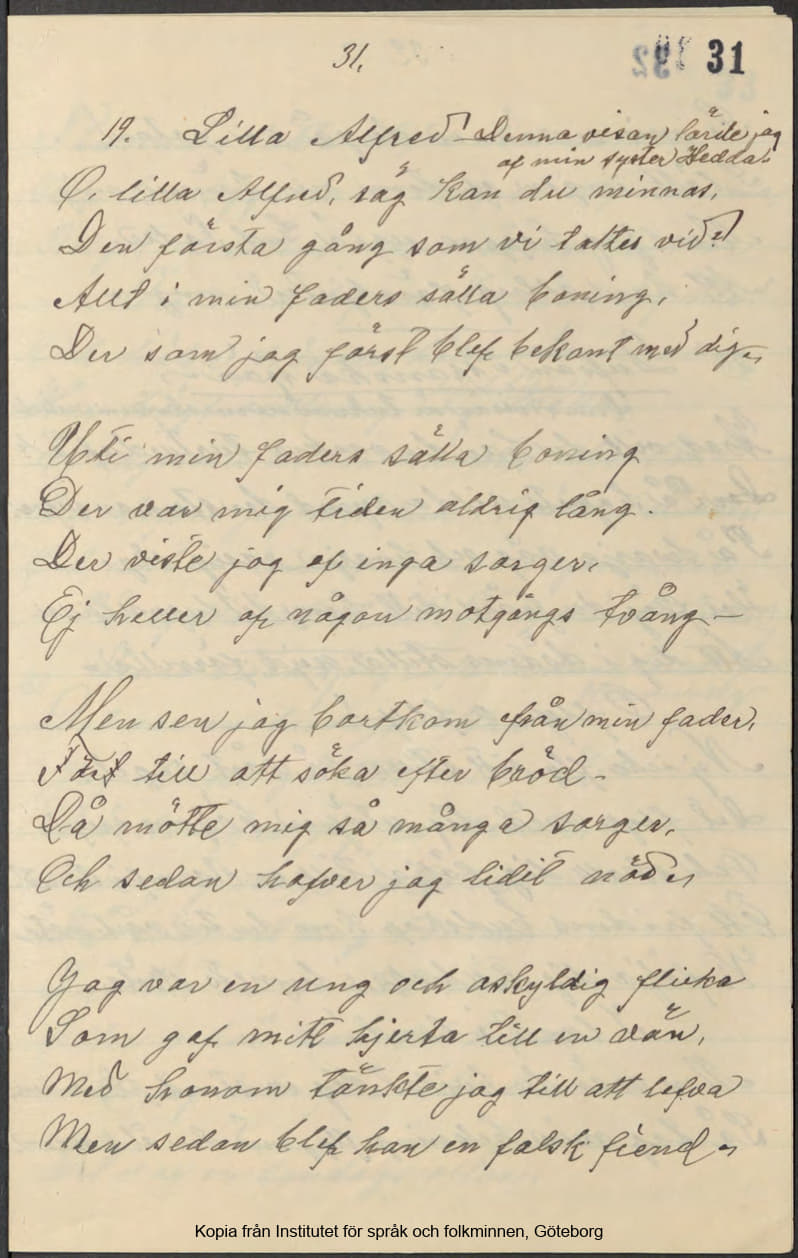 31.
31
19. Lilla Alfred! Denna visan lärde jag
af min syster Hedda.
O, lilla Alfred, säg kan du minnas,
Den första gång som vi taltes vid?
Allt i min faders sälla boning,
Der som jag först blef bekant med dig
Uti min faders sälla boning
Der var mig tiden aldrig lång.
Der viste jag af inga sorger,
Ej heller af någon motgångs tvång –
Men sen jag bortkom från min fader,
Fört till att söka efter bröd –
Då mötte mig så många sorger,
Och sedan hafver jag lidit nöd
Jag var en ung och oskyldig flicka
Som gaf mitt hjerta till en vän,
Med honom tänkte jag till att lefva
Men sedan blef han en falsk fiend
Kopia från Institutet för språk och folkminnen, Göteborg